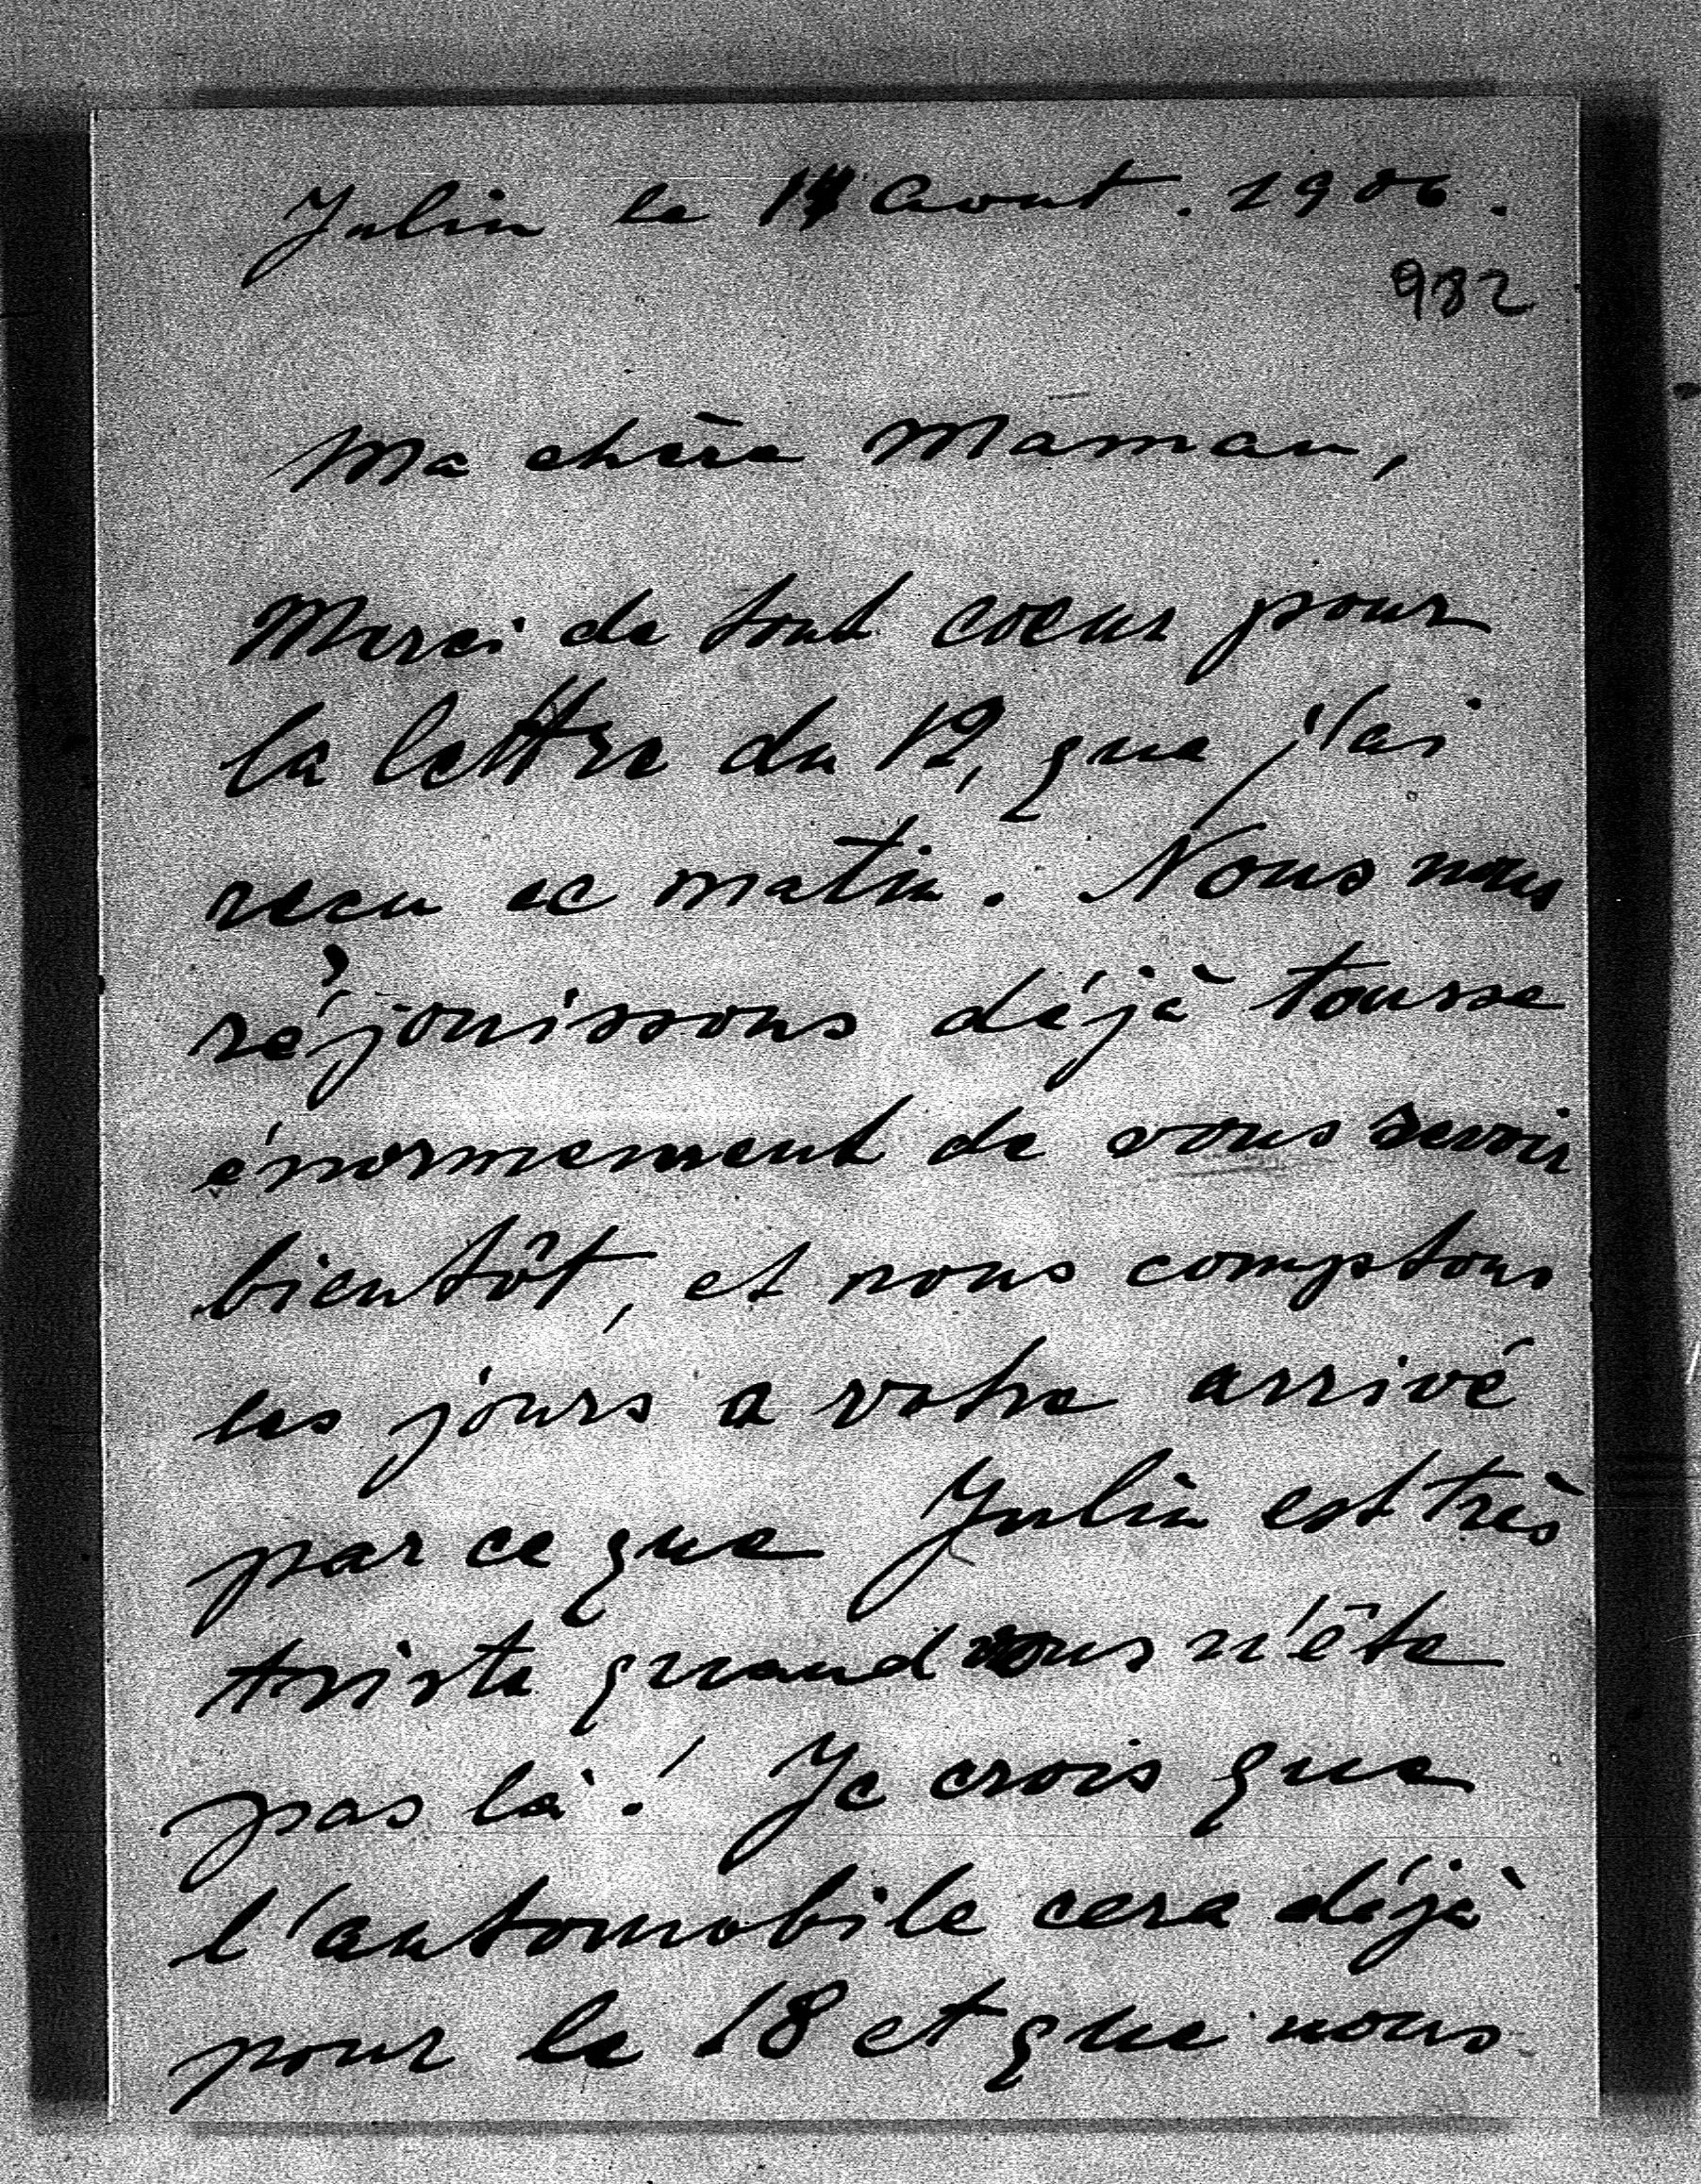 Julin le 14 Aout. 1906.
982
Ma chère Maman,
Merci de tout coeur pour
la lettre du 12, que j'ai
recu ce matin. Nous nous
réjouissons déjà tousse
énormement de vous revoir
bientôt, et nous comptons
les jours a votre arrivé
par ce que Julin est très
triste quand vous n'ête
pas là! Je crois que
l'automobile cera déjà
pour le 18 et que nous